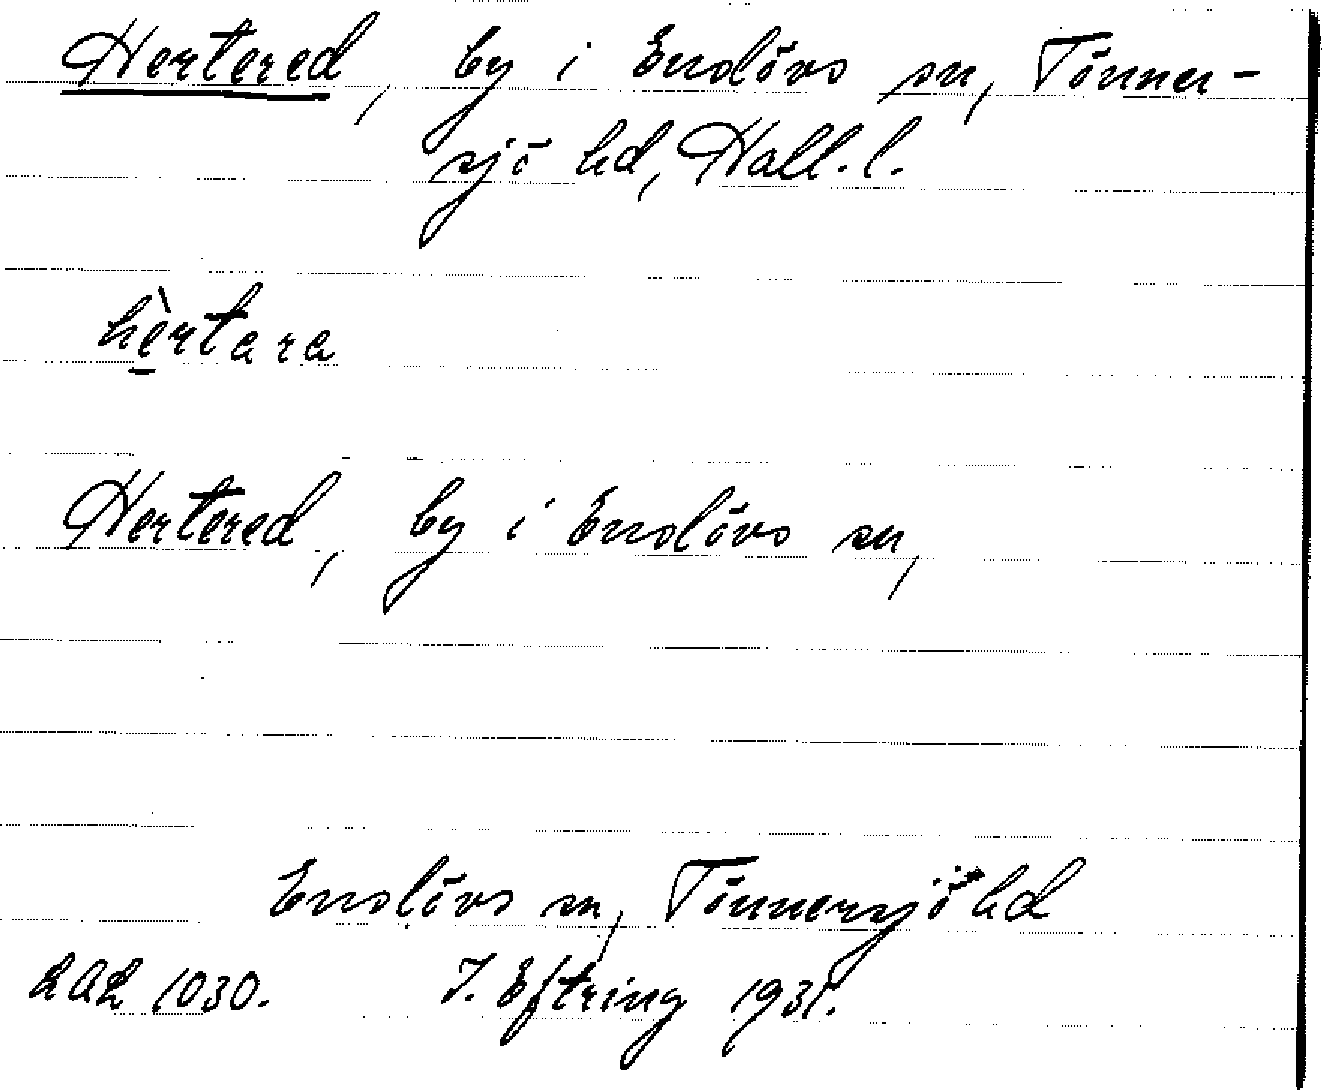 Hertered, by i Enslövs sn, Tönner-
sjö hd, Hall. l.
hèrtara
Hertered, by i Enslövs sn,
Enslövs sn, Tönnersjö hd
LAL 1030. J. Eftring 1931.